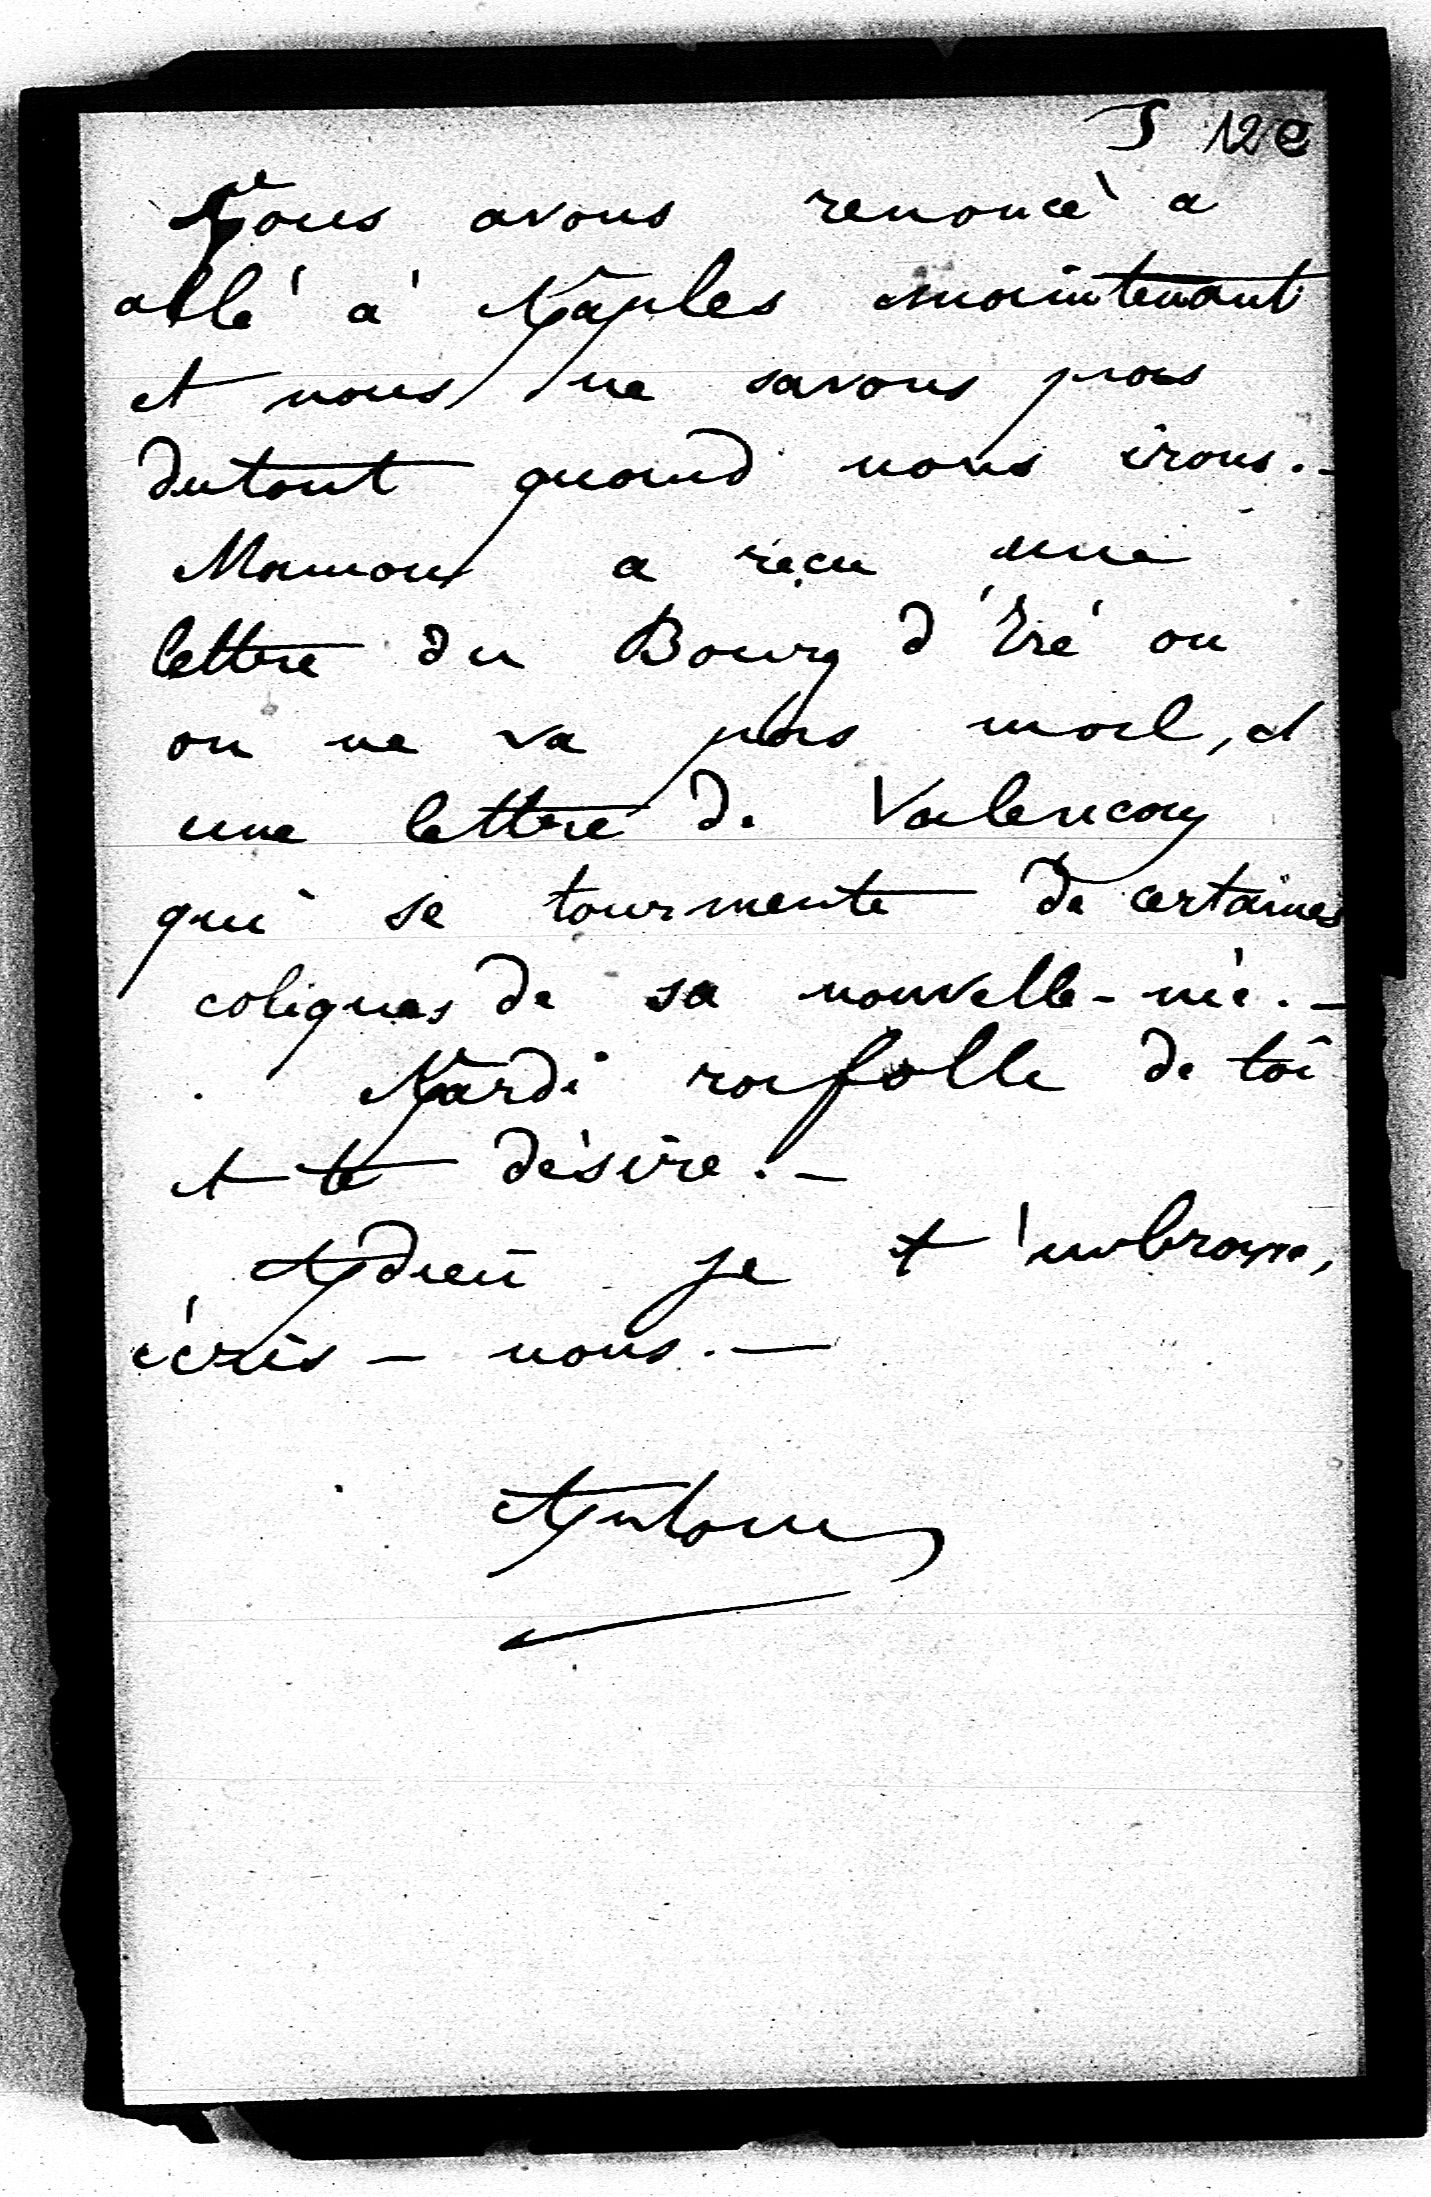 J 12e
Nous avons renoncé a
allé à Naples maintenant
et nous ne savons pas
dutout quand nous irons. -
Maman a reçu une
lettre du Bourg d'Iré ou
on ne va pas mal, et
une lettre de Valencay
qui se tourmente de certaines
coliques de sa nouvelle-née. -
Nardi raffolle de toi
et te désire. -
Adieu je t'embrasse,
écris - nous. -
Antoine